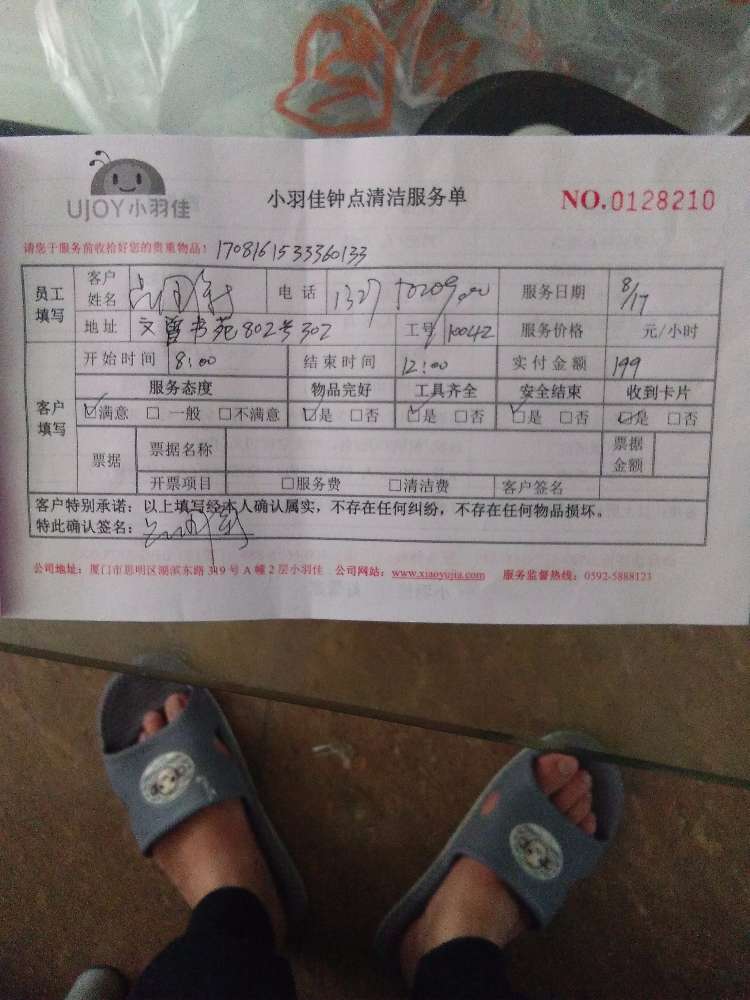 UJOY小羽佳
小羽佳钟点清洁服务单
NO.0128210
请您于服务前收拾好您的贵重物品！ 1708161533360133
员工填写 客户姓名 电话 服务日期 8/17
地址 802号302 工号 10042 服务价格 元/小时
客户填写 开始时间 8:00 结束时间 12:00 实付金额 199
服务态度 物品完好 工具齐全 安全结束 收到卡片
☑满意 □一般 □不满意 ☑是 □否 ☑是 □否 ☑是 □否 ☑是 □否
票据 票据名称 票据金额
开票项目 □服务费 □清洁费 客户签名
客户特别承诺：以上填写经本人确认属实，不存在任何纠纷，不存在任何物品损坏。
特此确认签名：
公司地址：厦门市思明区湖滨东路319号A幢2层小羽佳 公司网站：www.xiaoyujia.com 服务监督热线：0592-5888123